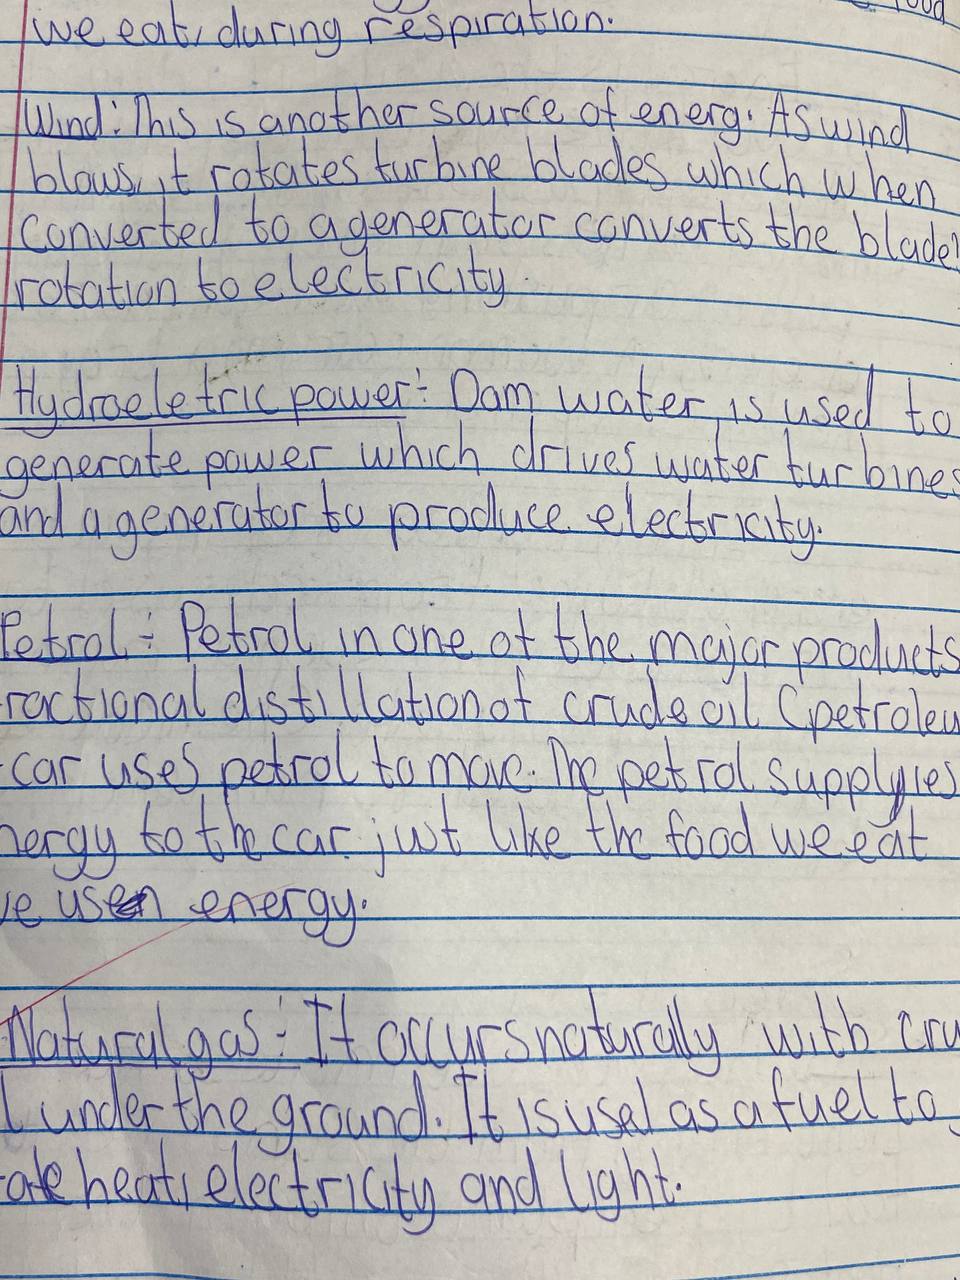 food
we eat, during respiration.
Wind:- This is another source of energ. As wind
blows, it rotates turbine blades which when
converted to a generator converts the blade
rotation to electricity.
Hydroeletric power:- Dam water is used to
generate power which drives water turbines
and a generator to produce electricity.
Petrol:- Petrol in one of the major products
ractional distillation of crude oil (petroleu
car uses petrol to move. The petrol supplyies
nergy to the car just like the food we eat
energy.
Natural gas:- It occurs naturally with cru
l under the ground. It is used as a fuel to
ate heat, electricity and light.